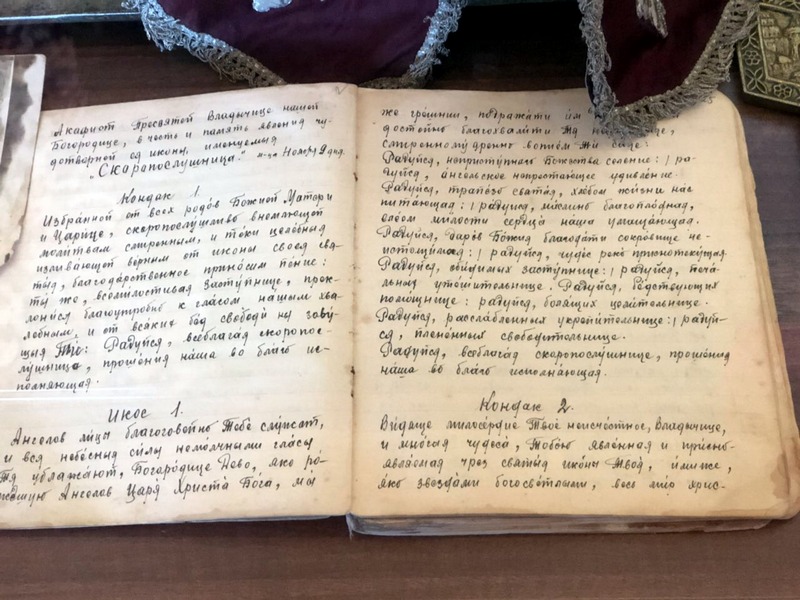 Акафист Пресвятей Владычице нашей
Богородице, в честь и память явления чу-
дотворной ея иконы, именуемыя
"Скоропослушница." м-ца Ноября 9 дня.
Кондак 1.
Избра́нной от всех родо́в Божией Матери
и Цари́це, скоропослу́шливо внемлющей
моли́твам смире́нным, и то́ки целе́бныя
излива́ющей ве́рным от ико́ны своея свя-
ты́я, благода́рственное прино́сим пе́ние:
ты́ же, всеми́лостивая Засту́пнице, прек-
лони́ся благоутро́бне к гла́сом на́шым хва-
ле́бным, и от вся́ких бе́д свободи́ ны, зову́-
щыя Ти́: Ра́дуйся, всеблага́я скоропос-
лу́шнице, проше́ния на́ша во бла́го ис-
полня́ющая.
Икос 1.
А́нгелов ли́цы благогове́йно Тебе́ слу́жат,
и вся небе́сныя си́лы немо́лчными гла́сы
Тя́ ублажа́ют, Богоро́дице Де́во, я́ко ро́-
ждшую Ангелов Царя́ Христа́ Бога, мы́
же гре́шнии, подража́ти им
досто́йно благохвали́ти Тя́
смиренному́дренно вопие́м Ти́ си́це:
Ра́дуйся, непристу́пнаго Божества́ селе́ние: / ра́-
дуйся, а́нгельское непреста́ющее удивле́ние.
Ра́дуйся, трапе́зо свята́я, хле́бом жи́зни нас
пита́ющая: / ра́дуйся, ма́слино благопло́дная,
еле́ом ми́лости сердца́ на́ша умаща́ющая.
Ра́дуйся, даро́в Бо́жия благода́ти сокро́вище не-
истощи́мая: / ра́дуйся, чуде́с реко́ приснотеку́щая
Ра́дуйся, оби́димых засту́пнице: / ра́дуйся, печа́-
льных утеши́тельнице. Ра́дуйся, бе́дствующих
помо́щнице: ра́дуйся, боля́щих цели́тельнице.
Ра́дуйся, разсла́бленных укрепи́тельнице: / ра́дуй-
ся, плене́нных свободи́тельнице.
Ра́дуйся, всеблага́я скоропослу́шнице, проше́ния
на́ша во бла́го исполня́ющая.
Кондак 2.
Ви́дяще милосе́рдие Твое́ неисче́тное, Влады́чице,
и мно́гая чудеса́, Тобо́ю явле́нная и при́сно-
явля́емая чрез святы́я ико́ны Твоя́, и́миже,
я́ко звезда́ми богосве́тлыми, весь ми́р хрис-